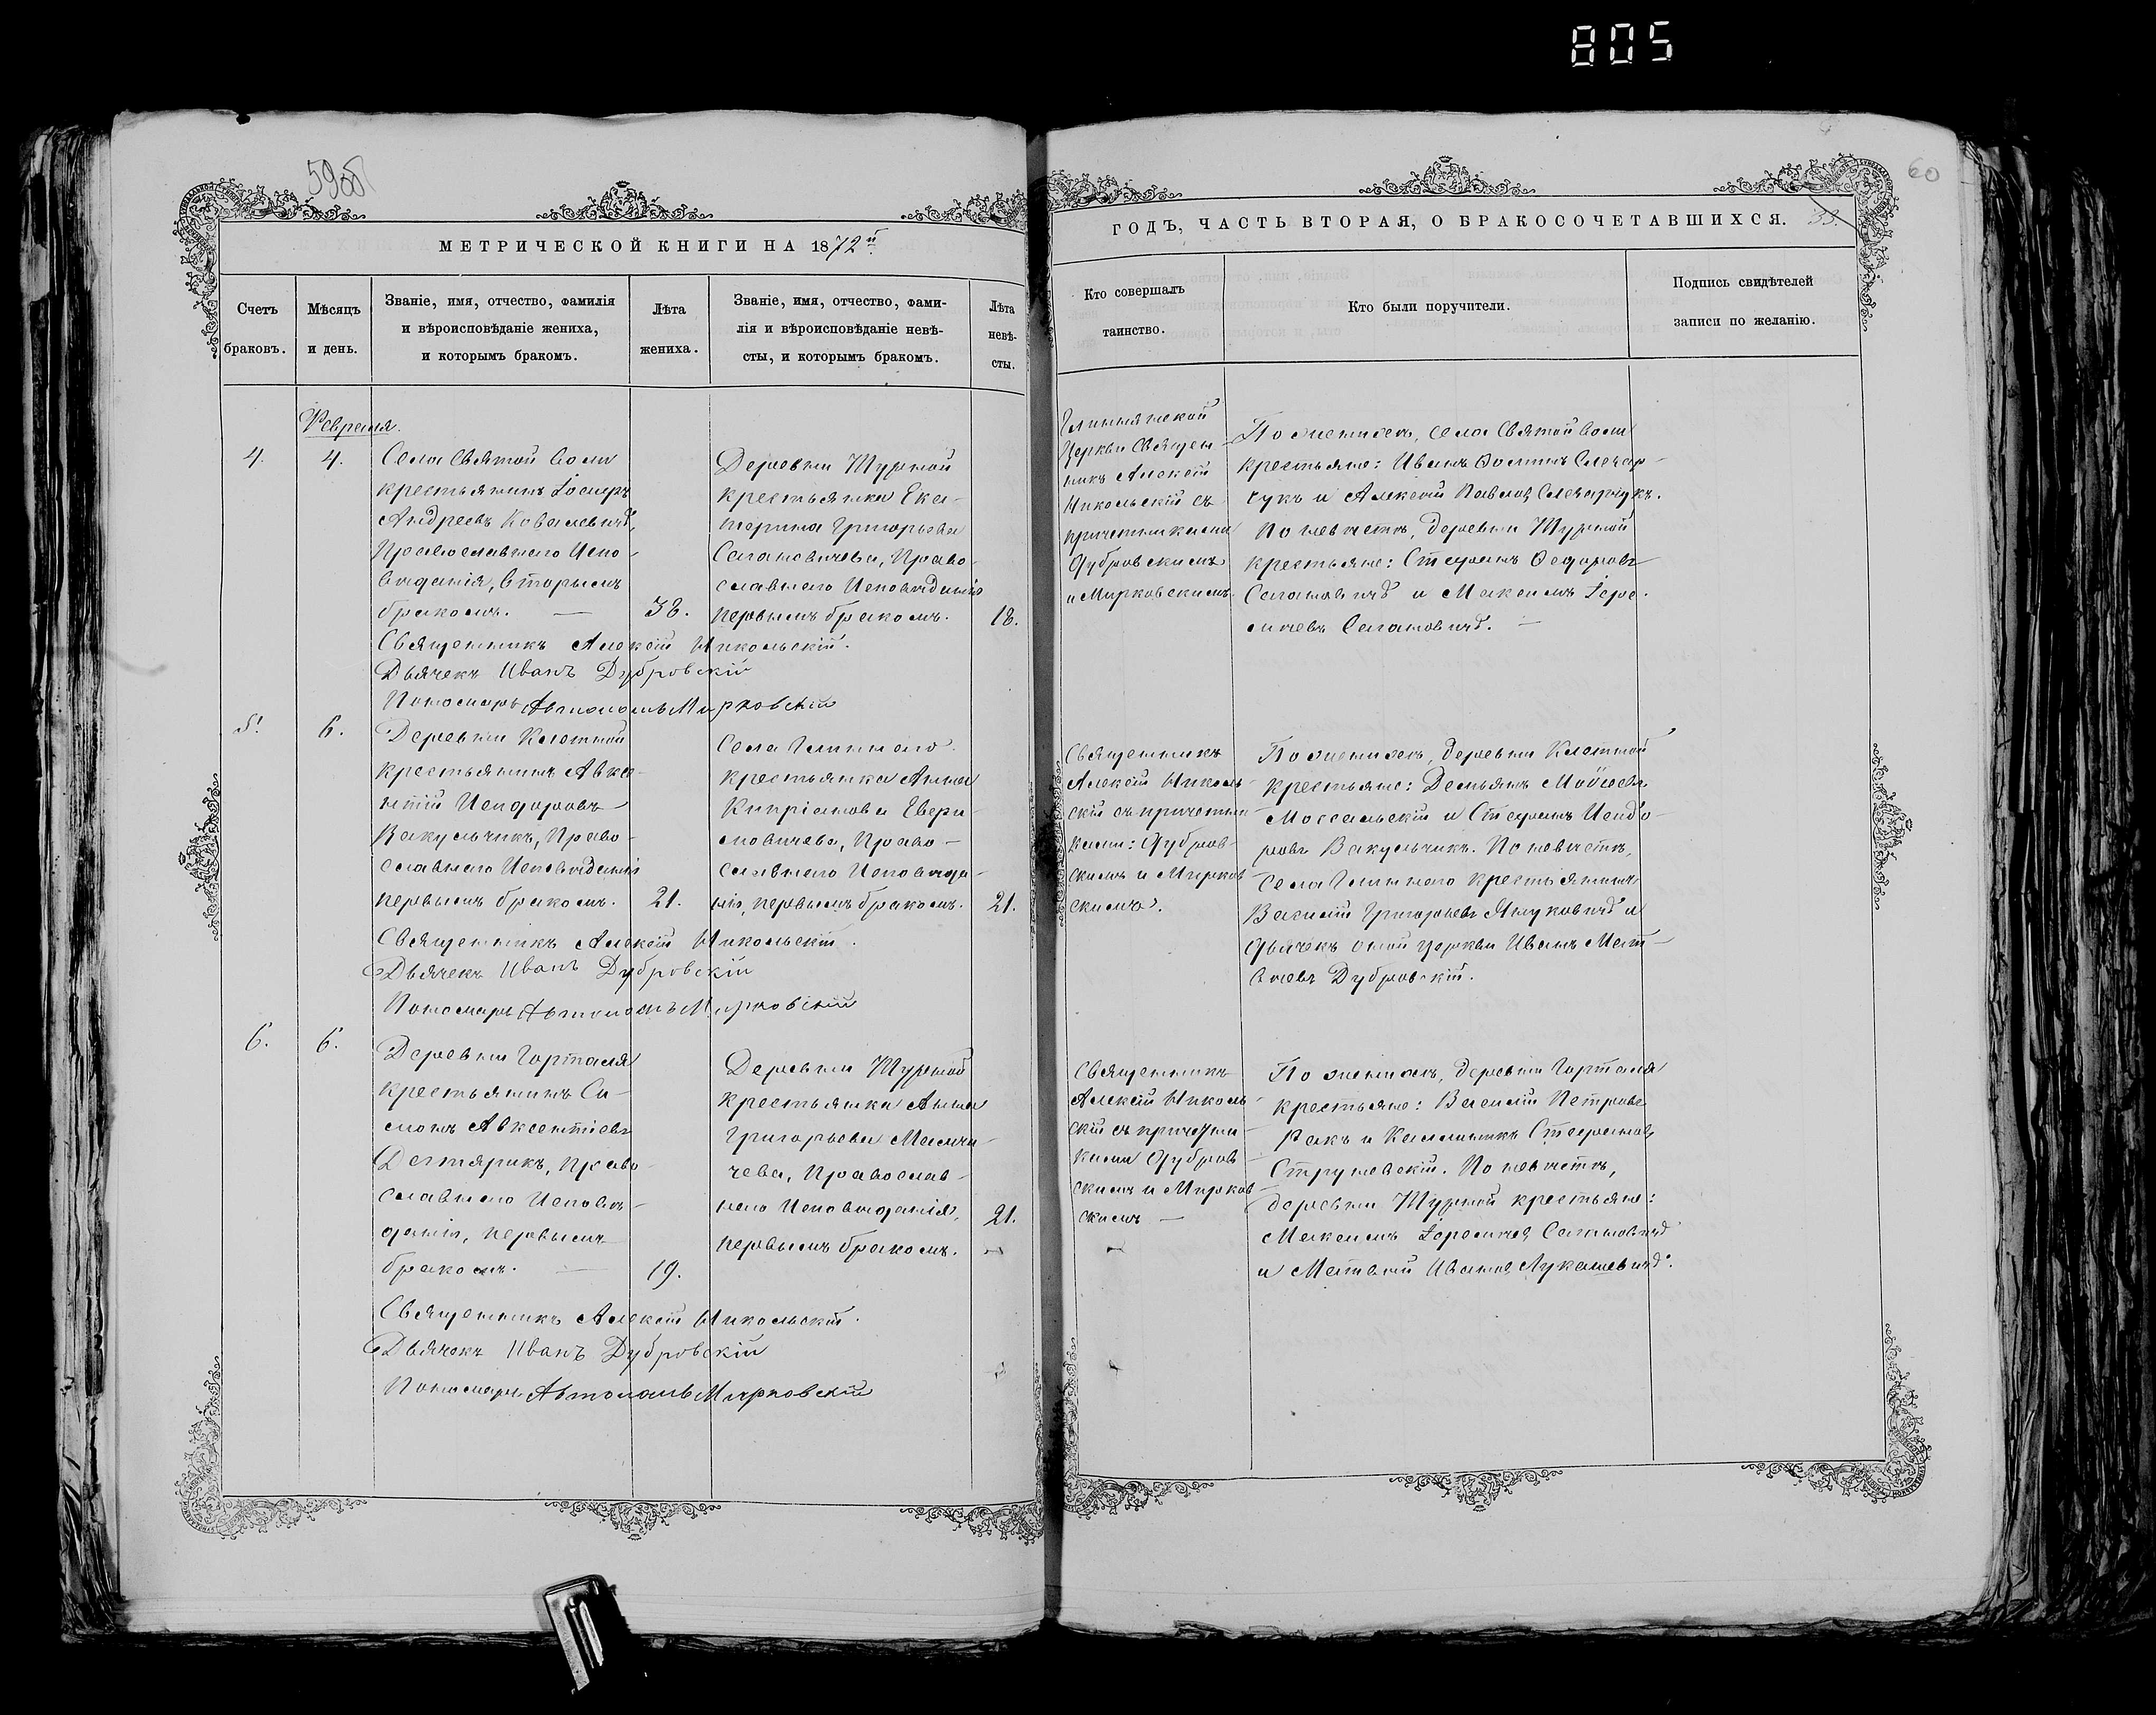 805
60
МЕТРИЧЕСКОЙ КНИГИ НА 1872й
Счетъ
браковъ.
Мѣсяцъ
и день.
Званіе, имя, отчество, фамилія
и вѣроисповѣданіе жениха,
и которымъ бракомъ.
Лѣта
жениха.
Званіе, имя, отчество, фами-
лія и вѣроисповѣданіе невѣ-
сты, и которымъ бракомъ.
Лѣта
невѣ-
сты.
Февраля.
4.
4.
Села Святой Воли
крестьянинъ Іосифъ
Андреевъ Ковалевичъ,
Православнаго Испо-
вѣданія, вторымъ
бракомъ. —
38.
Деревни Турной
крестьянка Ека-
терина Григорьева
Сахановичева, Право-
славнаго Исповѣданія
первымъ бракомъ.
18.
Священникъ Алексій Никольскій.
Дьячекъ Иванъ Дубровскій
Пономарь Автономъ Мирковскій
5.
6.
Деревни Клетной
крестьянинъ Авксе-
нтій Исидоровъ
Вакульчикъ, Право-
славнаго Исповѣданія
первымъ бракомъ.
21.
Села Глинного
крестьянка Анна
Кипріанова
Право-
славнаго Исповѣда-
нія, первымъ бракомъ.
21.
Священникъ Алексій Никольскій.
Дьячекъ Иванъ Дубровскій
Пономарь Автономъ Мирковскій
6.
6.
Деревни Гортоля
крестьянинъ Си-
монъ Авксентіевъ
Дегтярикъ, Право-
славнаго Исповѣ-
данія, первымъ
бракомъ. —
19.
Деревни Турной
крестьянка Анна
Григорьева
Православ-
наго Исповѣданія,
первымъ бракомъ.
21.
Священникъ Алексій Никольскій.
Дьячекъ Иванъ Дубровскій
Пономарь Автономъ Мирковскій
ГОДЪ, ЧАСТЬ ВТОРАЯ, О БРАКОСОЧЕТАВШИХСЯ.
33.
Кто совершалъ
таинство.
Кто были поручители.
Подпись свидѣтелей
записи по желанію.
Глинянской
Церкви Священ-
никъ Алексій
Никольскій съ
причетниками
Дубровскимъ
и Мирковскимъ.
По женихѣ, села Святой Воли
крестьяне: Иванъ Ѳоминъ Слесар-
чукъ и Алексій Павловъ Слесарчукъ.
По невѣстѣ, деревни Турной
крестьяне: Стефанъ Ѳедоровъ
Сахановичъ и Максимъ Іере-
міевъ Сахановичъ. —
Священникъ
Алексій Николь-
скій съ причетни-
ками: Дубров-
скимъ и Мирков-
скимъ.
По женихѣ, деревни Клетной
крестьяне: Демьянъ Мойсеевъ
Моссальскій и Стефанъ Исидо-
ровъ Вакульчикъ. По невѣстѣ,
села Глинного крестьянинъ
Василій Григорьевъ Януковичъ и
дьячекъ оной церкви Иванъ Мат-
вѣевъ Дубровскій.
Священникъ
Алексій Николь-
скій съ причетни-
ками Дубров-
скимъ и Мирков-
скимъ —
По женихѣ, деревни Гортоля
крестьяне: Василій Петровъ
Ракъ и Калинникъ Стефановъ
Струневскій. По невѣстѣ,
деревни Турной крестьяне:
Максимъ Іереміевъ Сахановичъ
и Матвѣй Ивановъ Лукашевичъ.